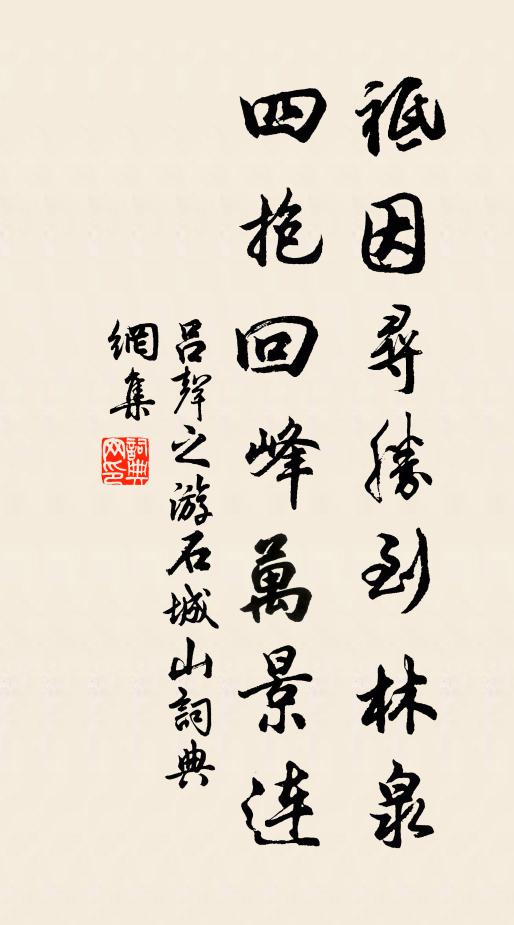 祗因尋勝到林泉
四抱回峰萬景連
呂聲之游石城山詞典
網集
詞典網印